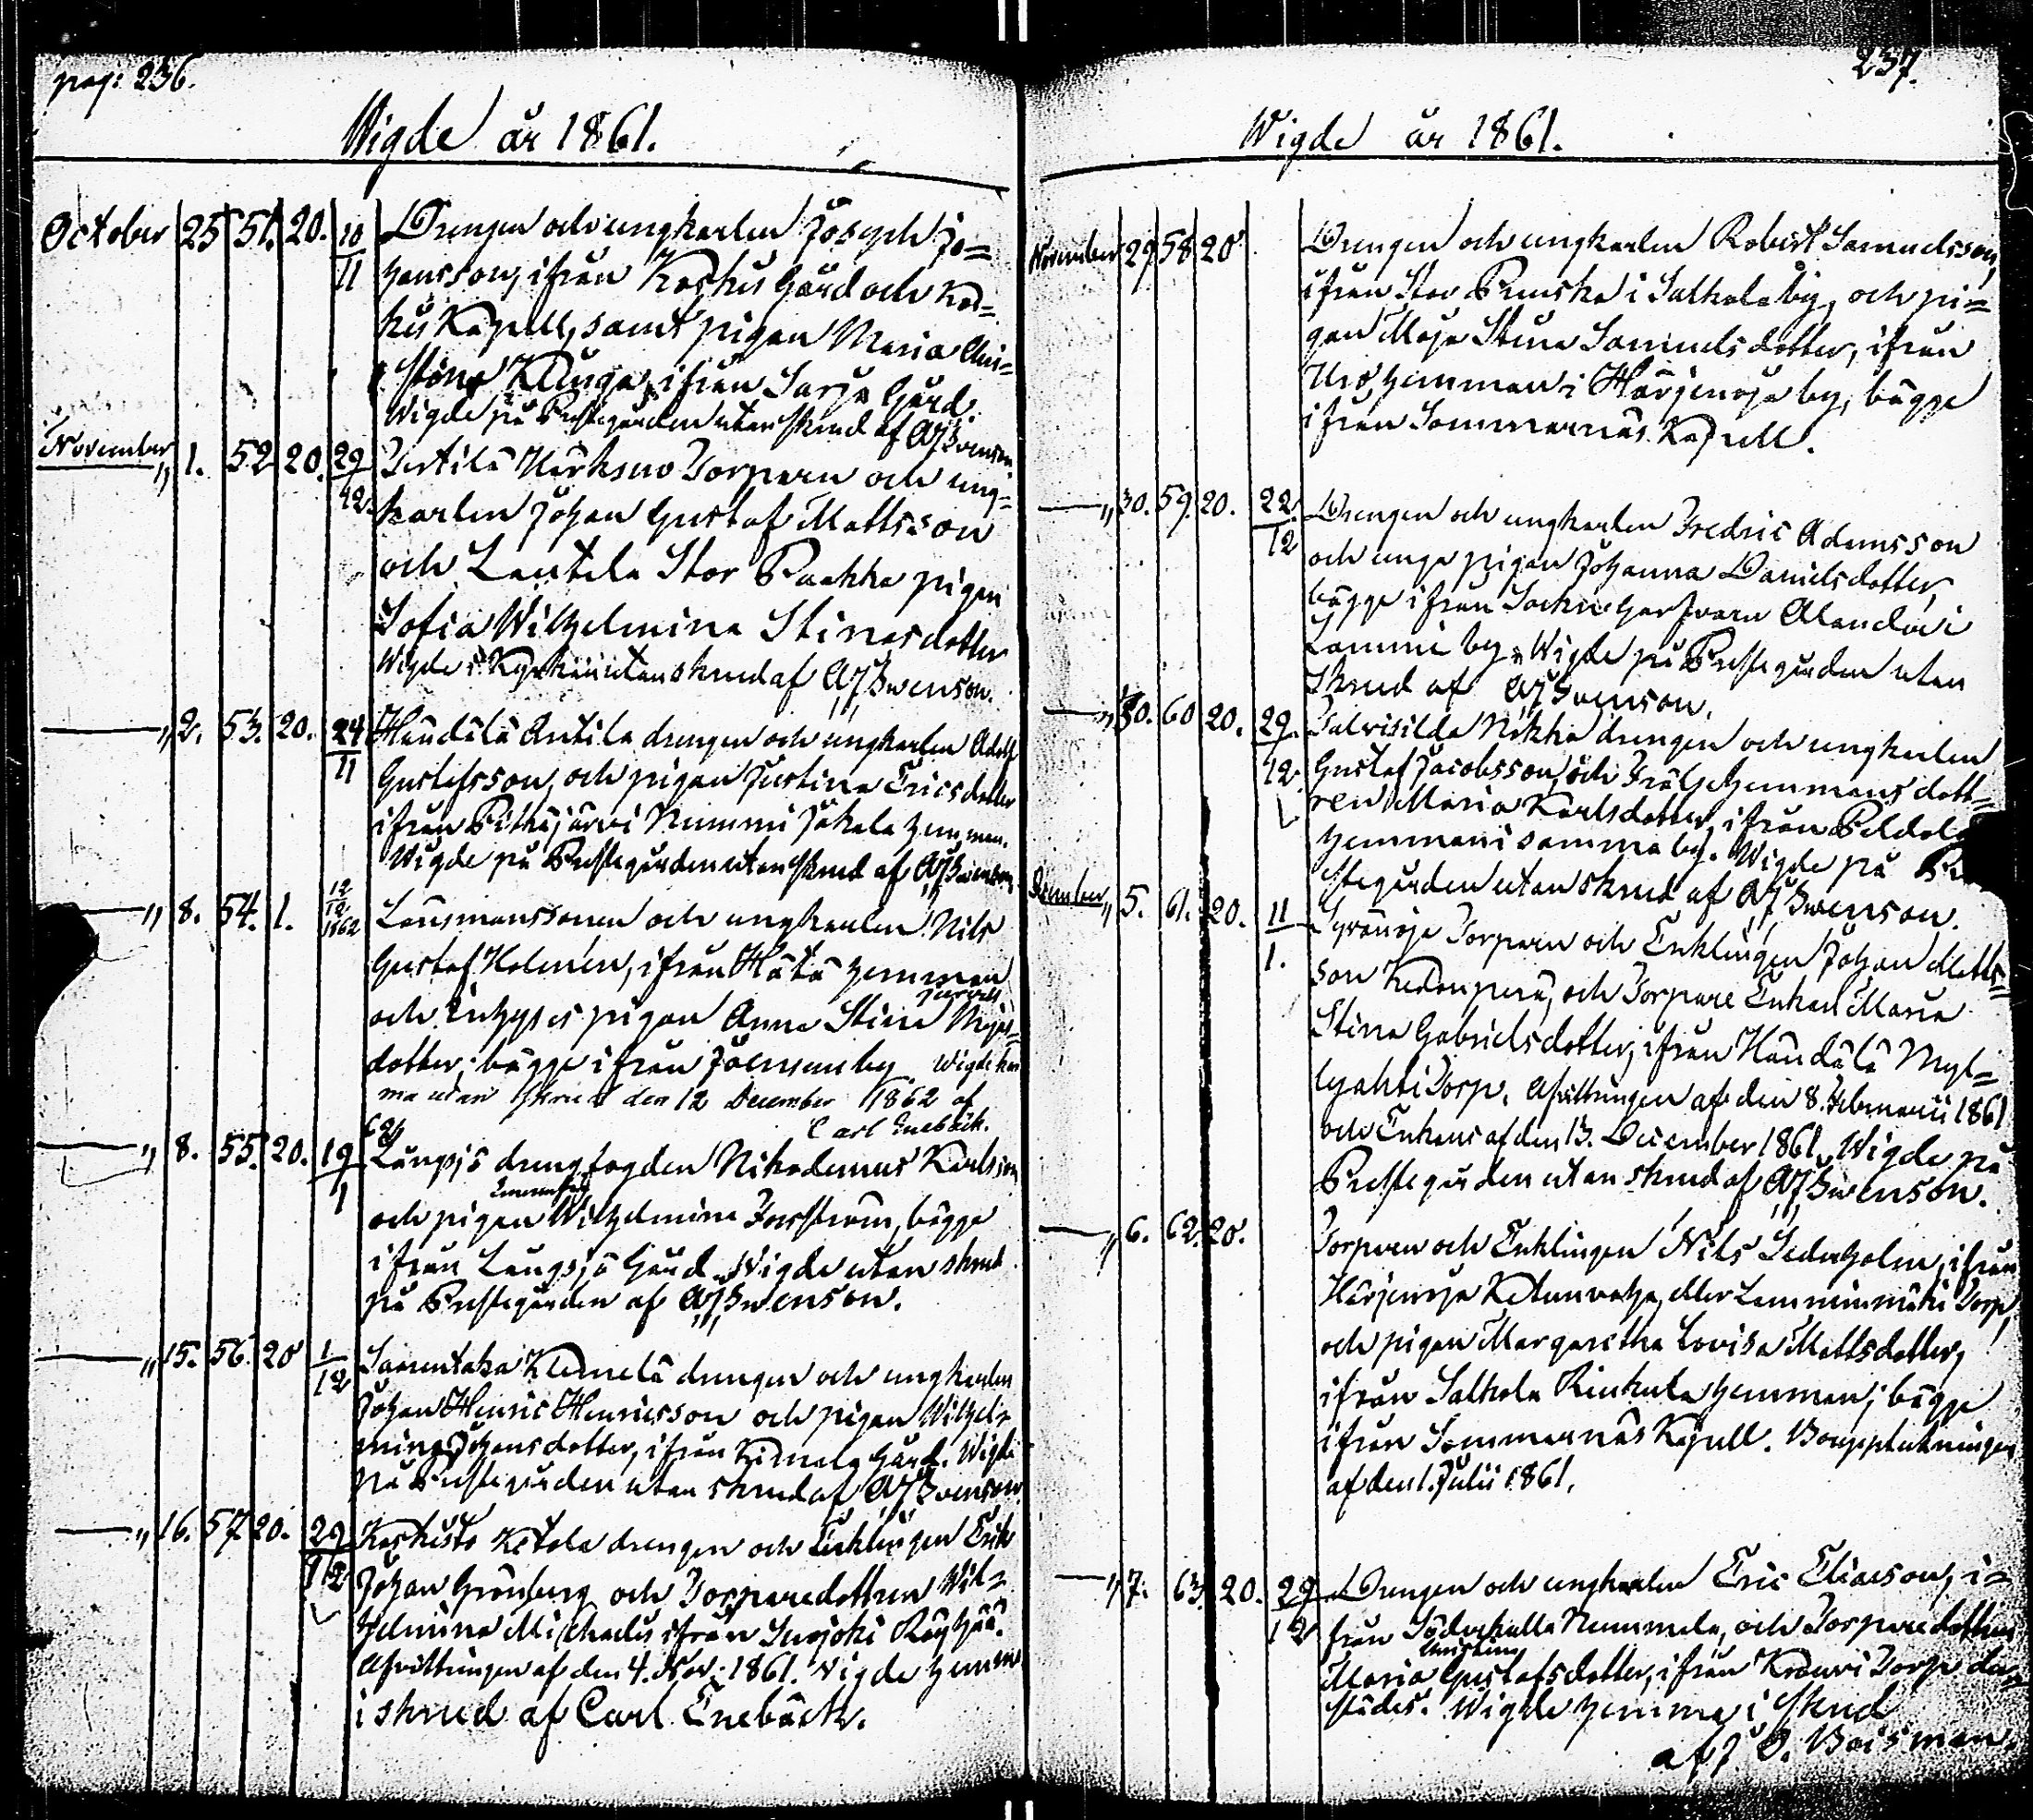 pag: 236.
Wigde år 1861.
October 25 51. 20. 10/11 Drengen och ungkarlen Joseph Jo=
hansson, ifrån Koskis Gård och Kos=
kis Kapell, samt pigan Maria Chri=
stina Kluga, ifrån Sarja Gård.
Wigde på Prestegården utan skrud af AJSwenson.
November " 1. 52 20. 29/12. Torparen och ung=
karlen Johan Gustaf Mattsson
och Stor pigan
Sofia Wilhelmina Stinasdotter
Wigde i Kyrkan utan skrud af AJSwenson.
— " 2. 53. 20. 24/11 Haudälä Antila drengen och ungkarlen Adolf
Gustafsson, och pigan Justina Ericsdotter
ifrån Pitkäjärvi Nummi Jakala hemman.
Wigde på Prestegården utan skrud af AJSwenson
— " 8. 54. 1. 12/12 1862 Länsmanssonen och ungkarlen Nils
Gustaf Holmén, ifrån hemman
och pigan Anna Stina
dotter, bägge ifrån by Wigde hem
ma utan skrud den 12 December 1862 af
Carl Enebäck.
— " 8. 55. 20. 19/1 Långsjö drengfogden Nikodemus Karlsson
och pigan Wilhelmina Forsström, bägge
ifrån Långsjö Gård. Wigde utan skrud
på Prestegården af AJSwenson.
— " 15. 56. 20 1/12 Saarentaka Klemelä drengen och ungkarlen
Johan Henric Henricsson och pigan Wilhel=
mina Johansdotter, ifrån Kimala Gård. Wigde
på Prestegården utan skrud af AJSwenson
— " 16. 57 20. 29/12 Koskisto Ketola drengen och Enklingen Erik
Johan Grönberg och Torparedottren Wil=
helmina Michaels ifrån
Afvittringen af den 4. Nov: 1861. Wigde hemma
i skrud af Carl Enebäck.
237.
Wigde år 1861.
November 29 58 20 Drengen och ungkarlen Robert Samuelsson,
ifrån Stor Pruska i Salkola by, och pi=
gan Maja Stina Samuelsdotter, ifrån
hemman i Härjenoja by, bägge
ifrån Sommarnäs Kapell.
— " 30. 59. 20. 22/12 Drengen och ungkarlen Fredric Adamsson
och unga pigan Johanna Danielsdotter,
bägge ifrån
Lammi by. Wigde på Prestegården utan
skrud af AJSwenson.
— " 30. 60 20. 29./12. Talvisilda Nikka drengen och ungkarlen
Gustaf Jacobsson, och Frälsehemmansdott=
ren Maria Karlsdotter, ifrån
hemman i samma by. Wigde på Pre
stegården utan skrud af AJSwenson.
December " 5. 61. 20. 11/1. Torparen och Enklingen Johan Matts=
son och Torpare Enkan Maria
Stina Gabrielsdotter, ifrån Haudälä Myl=
lyahti Torp. Afvittringen af den 8. Februarii 1861
och Enkans af den 13. December 1861. Wigde på
Prestegården utan skrud af AJSwenson.
— " 6. 62. 20. Torparen och Enklingen Nils Sederholm, ifrån
Härjenoja Ketunvaha, eller Lemminmäki Torp,
och pigan Margaretha Lovisa Mattsdotter,
ifrån Salkola Rinkula hemman; bägge
ifrån Sommarnäs Kapell. Bouppteckningen
af den 1. Julii 1861.
— " 7. 63. 20. 29/12 Drengen och ungkarlen Eric Eliasson, i=
från Söderkulla Nummela, och Torparedottren
Maria Christina Gustafsdotter, ifrån Krouvi Torp der=
städes. Wigde hemma i skrud
af J. O. Boisman.